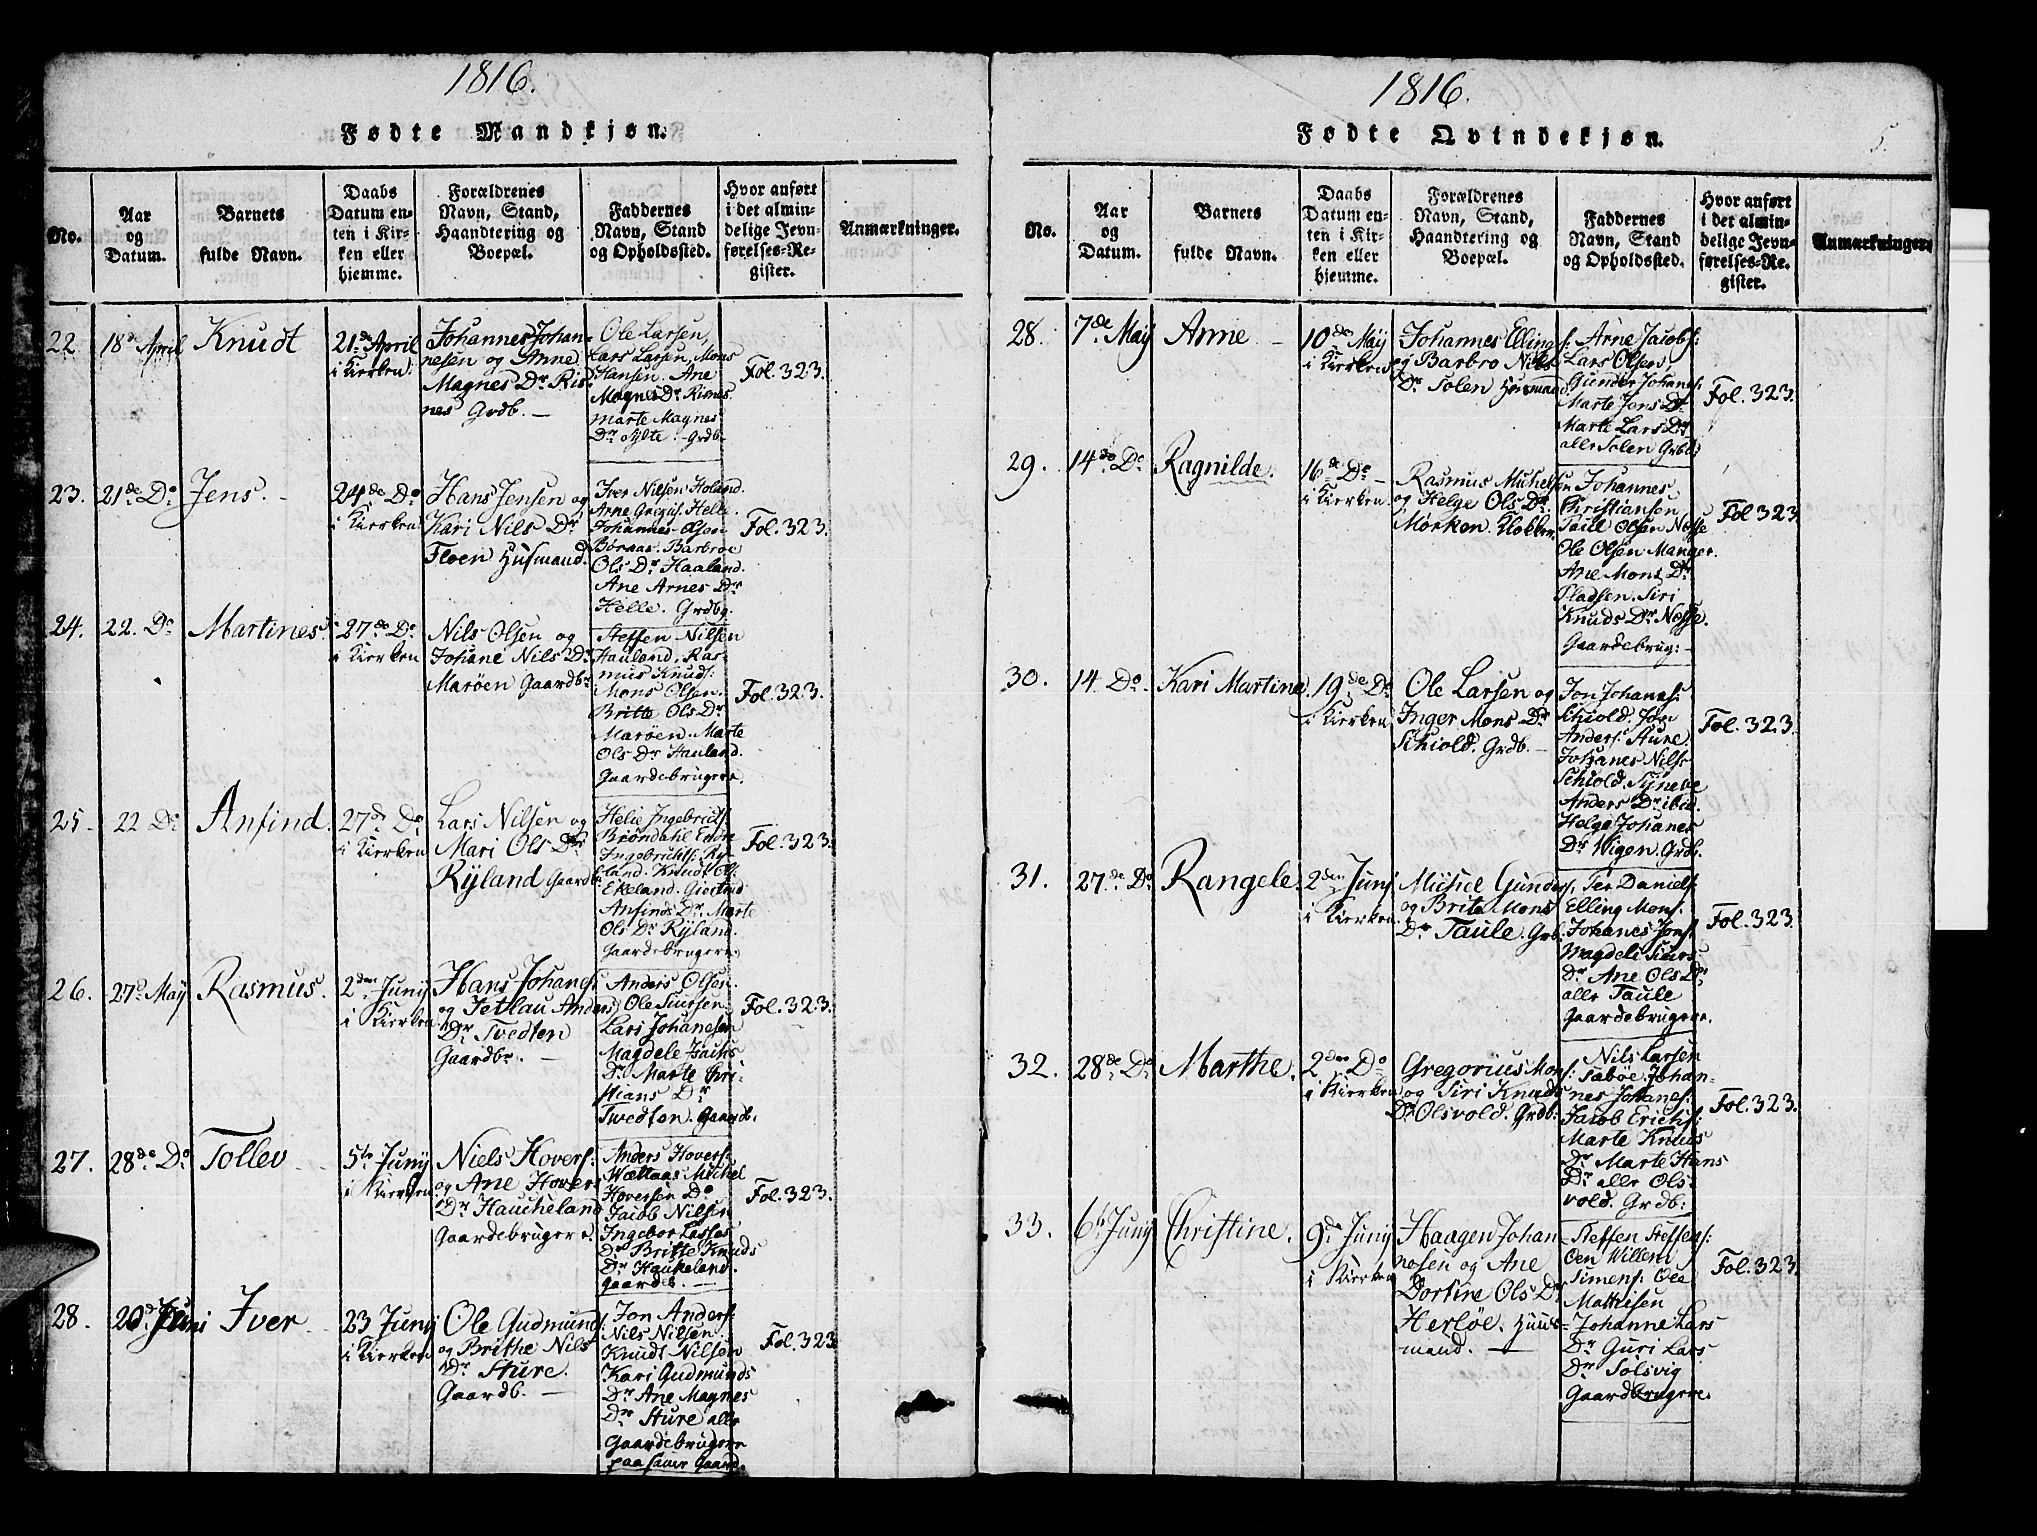 1816.
Fødte Mandkjøn.
No.
Aar
og
Datum.
Barnets
fulde Navn.
Daabs
Datum en-
ten i Kir-
ken eller
hjemme.
Forældrenes
Navn, Stand,
Haandtering og
Boepæl.
Faddernes
Navn, Stand
og Opholdssted.
Hvor anført
i det almin-
delige Jevn-
førelses-Re-
gister.
Anmærkninger.
22
18de April
Knudt
21.de April
i Kierken.
Johannes Johan-
nesen og Anne
Magnes Dr Ris-
nes Grdb. —
Ole Larsen,
Lars Larsen, Mons
Hansen. Ane
Magnes Dr Risnes
Marte Magnes
Dr Sylte. Grdb
Fol. 323.
23.
21de Do
Jens. -
24de Do
i Kierken
Hans Jensen og
Kari Nils Dr
Floen Husmand.
Iver Nilsen Holand.
Arne Grigus. Helle
Johannes Olsen
Børnas. Barbroe
Ols Dr Haaland.
Ane Arnes Dr
Helle. Grdbg.
Fol. 323.
24.
22. Do
Martines.
27de Do
i Kierken
Nils Olsen og
Johane Nils Dr
Marøen Gaardbr
Steffen Nilsen
Hauland, Ras-
mus Knuds:
Mons Olsen.
Britte Ols Dr
Marøen. Marte
Ols Dr Hauland.
Gaardebrugere.
Fol. 323.
25.
22 Do
Anfind.
27de Do
i Kierken
Lars Nilsen og
Mari Ols Dr
Ryland Gaardbr
Helie Ingebrids
Brøndahl Endre
Ingebrichts: Ry-
land. Knudt Ols:
Ekeland. Giertrud
Anfinds Dr. Marte
Ols Dr Ryland.
Gaardebrugere.
Fol. 323.
26.
27de May
Rasmus.
2den Junÿ
i Kierken
Hans Johanes:
og Jetlau Anders
Dr Tvedten
Gaardbr. —
Anders Olsen.
Ole Siursen.
Lars Johanesen
Magdele Isachs
Dr Marte Chri-
stians Dr
Tvedten. Gaardb.
Fol. 323.
27.
28de Do
Tollev
5te Junÿ
i Kierken
Niels Hovers:
og Ane Hovers
Dr Haucheland
Gaardebrugere.
Anders Hovers:
Wættaas Michel
Hoversen Do
Jacob Nilsen
Ingebor Lasses
Dr Britte Knuds
Dr Haukeland.
Gaardeb. —
Fol. 323.
28.
20de Juni
Iver
23 Junÿ
i Kierken
Ole Gudmunds:
og Brithe Nils
Dr Sture.
Gaardb. —
Jon Anders:
Nils Nilsen.
Knudt Nilsen
Kari Gudmunds
Dr Ane Magnes
Dr Sture alle
Gaardebrugere
paa samme Gaard.
Fol. 323
1816.
Fødte Qvindekjøn.
5.
No.
Aar
og
Datum.
Barnets
fulde Navn.
Daabs
Datum en-
ten i Kir-
ken eller
hjemme.
Forældrenes
Navn, Stand,
Haandtering og
Boepæl.
Faddernes
Navn, Stand
og Opholdssted.
Hvor anført
i det almin-
delige Jevn-
førelses-Re-
gister.
Anmærkninger.
28.
7de Maÿ
Anne —
10de Maÿ
i Kierken
Johannes Ellings:
og Barbro Nils
Dr Solen Husmand
Arne Jacobs:
Lars Olsen,
Gunder Johanes:
Marte Jens Dr
Marte Lars Dr
alle Solen Grdb:
Fol. 323.
29.
14de Do
Ragnilde.
16de Do —
i Kierken.
Rasmus Michelsen
og Helge Ols Dr
Morken. Klokker.
Johannes
Christiansen
Paul Olsen Nesse
Ole Olsen Manger.
Ane Mons Dr
Pladsen. Siri
Knuds Dr Nesse.
Gaardebrug: —
Fol 323
30.
14 Do.
Kari Martine.
19de Do
i Kierken
Ole Larsen og
Inger Mons Dr
Schiold. Grdb. —
Jon Johanes:
Schiold. Jon
Anders: Sture.
Johanes Nils:
Schiold. Synneve
Anders Dr ibid.
Helga Johanes
Dr Wigen. Grdb.
Fol. 323.
31.
27de Do
Rangele.
2den Junÿ
i Kierken.
Michel Gunders:
og Brite Mons
Dr Taule. Grb.
Per Daniels:
Elling Mons:
Johanes Jons:
Magdeli Siurs
Dr Ane Ols Dr
alle Taule
Gaardebrugere.
Fol. 323.
32.
28de Do
Marthe.
2den Do
i Kierken
Gregorius Mons:
og Siri Knuds
Dr Olsvold. Grdb:
Nils Larsen
Sæbøe. Johan-
nes Johanes:
Jacob Erichs:
Marte Knuds
Dr Marte Hans
Dr alle Ols-
vold. Grdb:
Fol. 323.
33.
6te Junÿ
Christine.
9de Junÿ
i Kierken
Haagen Johan-
nesen og Ane
Dortine Ols Dr
Herløe. Huus-
mand. —
Steffen Steffens:
Oen Willem
Simens: Oee
Mathisen
Johanne Lars
Dr Guri Lars
Dr Solsvig
Gaardbrugere.
Fol. 323.